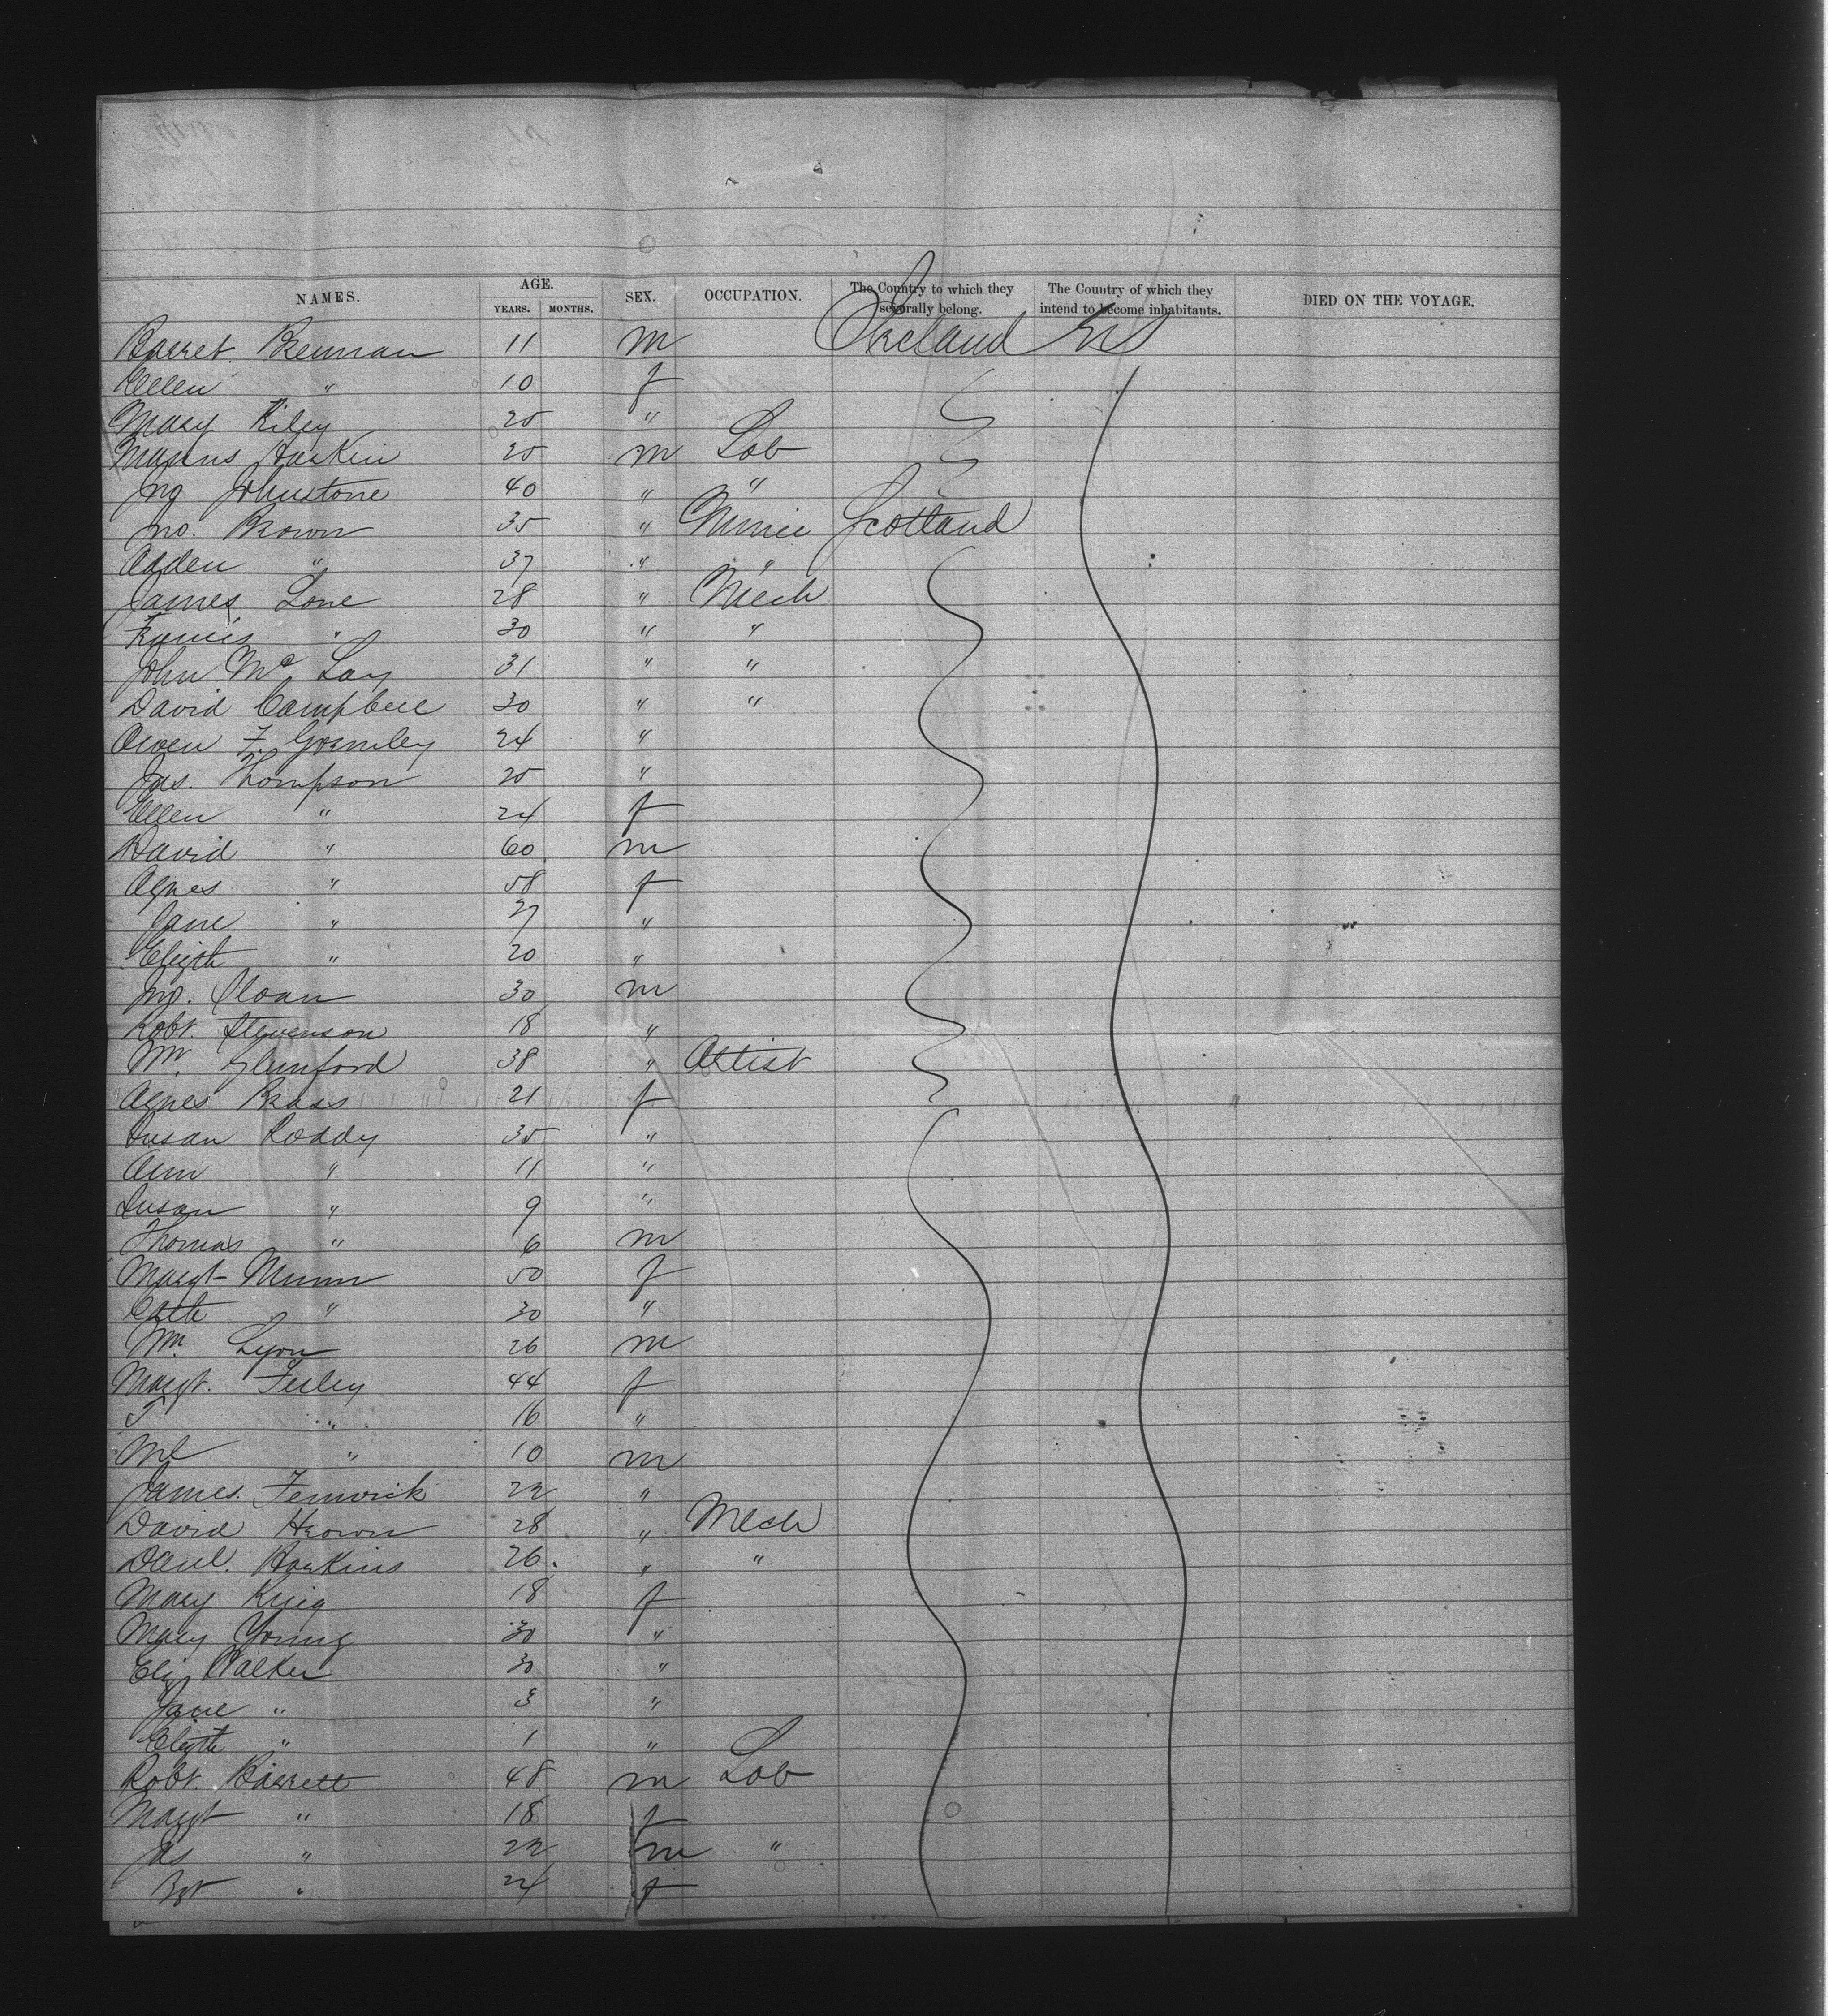 NAMES. AGE. SEX. OCCUPATION. The Country to which they severally belong. The Country of which they intend to become inhabitants. DIED ON THE VOYAGE.
YEARS. MONTHS.
Barret Brennan 11 m Ireland US
Ellen " 10 f
Mary Riley 25 "
Manus Harkin 25 m Lab
Jno Johnstone 40 " "
Jno. Brown 35 " Miner Scotland
" 37 " "
James Love 28 " Mech
Francis " 30 " "
John Mc Lay 31 " "
David Campbell 30 " "
Owen F. Gormley 24 "
Jas. Thompson 25 "
Ellen " 24 f
David " 60 m
Agnes " 58 f
Jane " 27 "
Elizth " 20 "
Jno. Sloan 30 m
Robt. Stevenson 18 "
Wm. Glunford 38 " Artist
Agnes Brass 21 f
Susan Roddy 35 "
Ann " 11 "
Susan " 9 "
Thomas " 6 m
Margt Munn 50 f
Cath " 30 "
Wm. Lyon 26 m
Margt. Feeley 44 f
T " 16 "
Ml " 10 m
James. Fenwick 22 "
David Brown 28 " Mech
Danl. Harkins 26. " "
Mary King 18 f
Mary Young 30 "
Eliz Walker 30 "
Jane " 3 "
Elizth " 1 "
Robt. Barrett 48 m Lab
Margt " 18 f
Jas " 22 m "
Bgt " 24 f